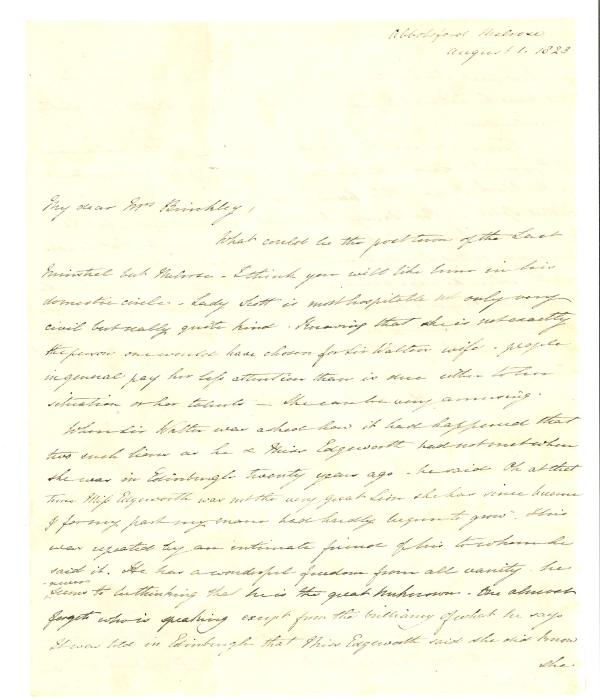 Abbotsford Melrose
August 1. 1823
My dear Mrs Brinkley,
What could be the post town of the Last
Minstrel but Melrose - I think you will like him in his
domestic circle - Lady Scott is most hospitable not only very
civil but really quite kind. Knowing that she is not exactly
the person one would have chosen for Sir Walters wife - people
in general pay her less attention than is due either to her
situation or her talents - She can be very amusing.
When Sir Walter was asked how it had happened that
two such lions as he & Miss Edgeworth had not met when
she was in Edinburgh twenty years ago - he said Oh at that
time Miss Edgeworth was not the very great Lion she has since become
& for my part my mane had hardly begun to grow. This
was repeated by an intimate friend of his to whom he
said it. He has a wonderful freedom from all vanity. he
never
seems to be thinking that he is the great Unknown - One almost
forgets who is speaking except from the brilliancy of what he says
It was told in Edinburgh that Miss Edgeworth said she did know
she